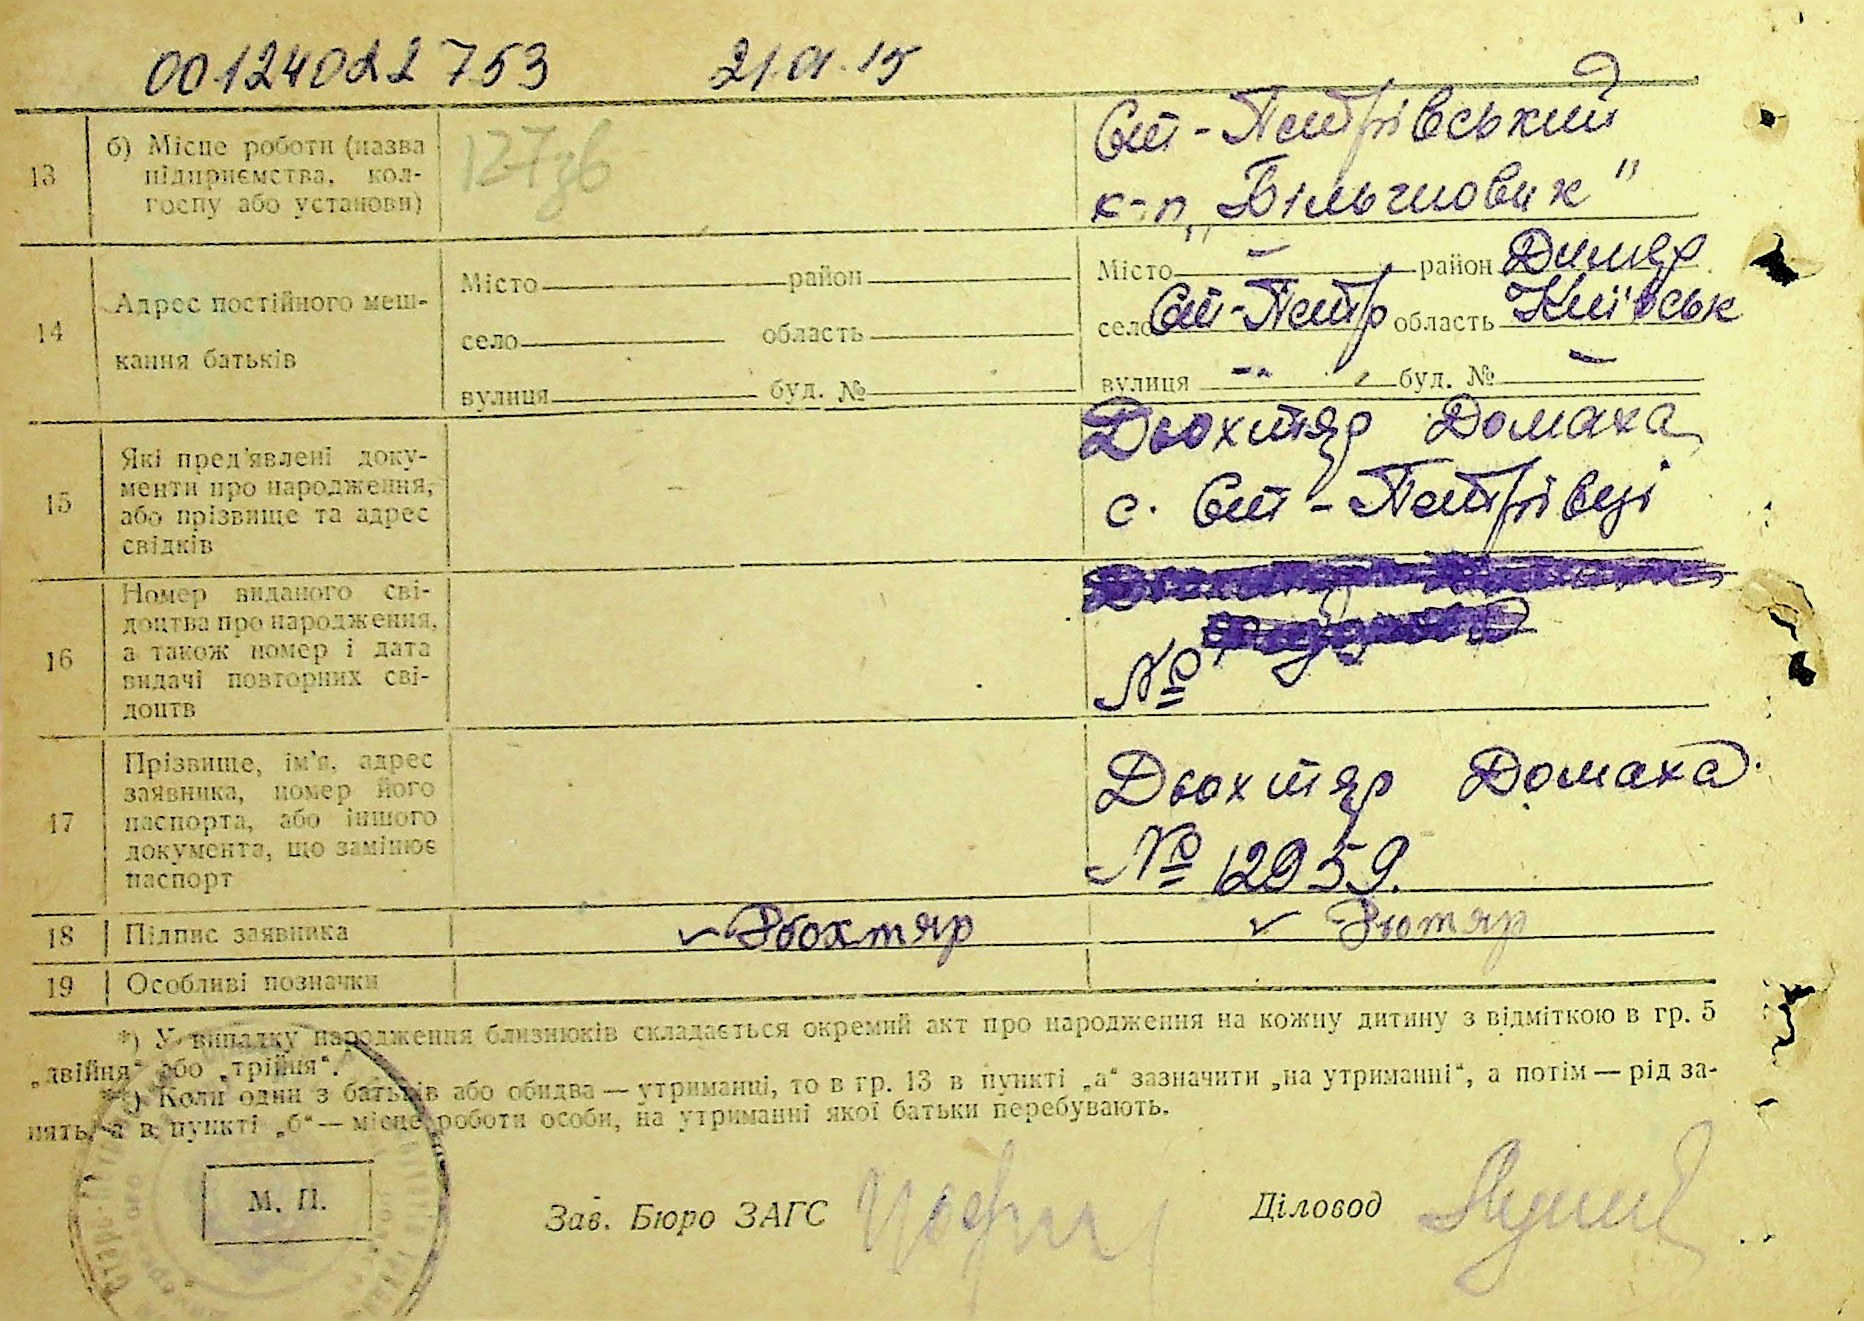 00124022753 21.01.15
13 б) Місце роботи (назва підприємства, кол-
госпу або установи)
127зв
Ст-Петрівський
к-п „Більшовик"
14 Адрес постійного меш-
кання батьків
Місто район
село область
вулиця буд. №
Місто — район Димер
село Ст-Петр область Київськ
вулиця — буд. № —
15 Які пред'явлені доку-
менти про народження,
або прізвище та адрес
свідків
Дьохтяр Домаха
с. Ст-Петрівці
16 Номер виданого сві-
доцтва про народження,
а також номер і дата
видачі повторних сві-
доцтв
№
17 Прізвище, ім'я, адрес
заявника, номер його
паспорта, або іншого
документа, що замінює
паспорт
Дьохтяр Домаха
№ 12959.
18 Підпис заявника
Дьохтяр
19 Особливі позначки
*) У випадку народження близнюків складається окремий акт про народження на кожну дитину з відміткою в гр. 5
„двійня“ або „трійня“.
**) Коли один з батьків або обидва — утриманці, то в гр. 13 в пункті „а“ зазначити „на утриманні“, а потім — рід за-
нять, а в пункті „б“ — місце роботи особи, на утриманні якої батьки перебувають.
М. П.
Зав. Бюро ЗАГС
Діловод